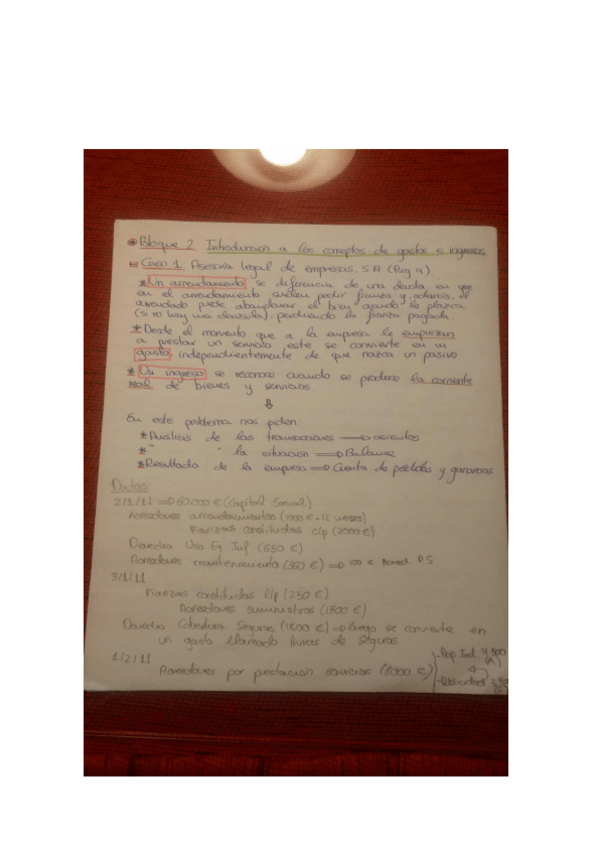 Bloque 2 Introducción a los conceptos de gastos e ingresos
Caso 1: Asesoria legal de empresas, S.A (Pag 9)
* Un arrendamiento se diferencia de una deuda en que
en el arrendamiento suelen pedir fianza y, además, el
arrendado puede abandonar el bien cuando le plazca
(si no hay una clausula), perdiendo la fianza pagada
* Desde el momento que a la empresa le empiezan
a prestar un servicio este se convierte en un
gasto, independientemente de que nazca un pasivo
* Un ingreso se reconoce cuando se produce la corriente
real de bienes y servicios
⇓
En este problema nos piden:
* Análisis de las transacciones ⇒ asientos
* " " la situación ⇒ Balance
* Resultado de la empresa ⇒ Cuenta de pérdidas y ganancias
Datos
2/1/11 ⇒ 60.000 € (Capital Social)
Acreedores arrendamientos (1000 € × 12 meses)
Fianzas constituidas c/p (2000 €)
Derecho Uso Eq Inf (650 €)
Acreedores mantenimiento (360 €) ⇒ 100 € P.S
3/1/11
Fianzas constituidas l/p (250 €)
Acreedores suministros (1800 €)
Derecho Cobertura Seguros (1600 €) ⇒ luego se convierte en
un gasto llamado Primas de Seguros
1/2/11
Acreedores por prestación servicios (8000 €)
- Prop Ind 4.500
(A)